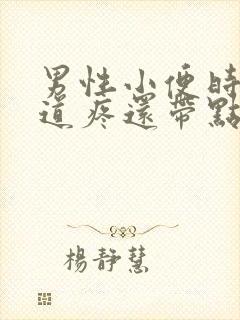 男性小便時
道疼還帶點
楊靜慧